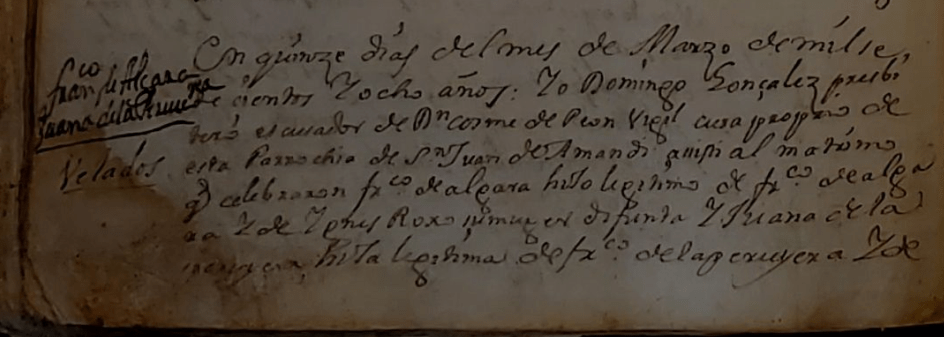 fran.co de Algara
Juana de la Peruyera
Velados
En quinze dias del mes de Marzo de mil se
te cientos Y ocho años: Yo Domingo Gonçalez presbi
tero escusador de Dn cosme de Peon Vigil cura proprio de
esta Parrochia de Sn Juan de Amandi assisti al matrimo
q celebraron frco de algara hijo legitimo de frco de alga
ra Y de Ynes Roxo su muger difunta Y Juana de la
peruyera hija legitima de frco de la peruyera Y de